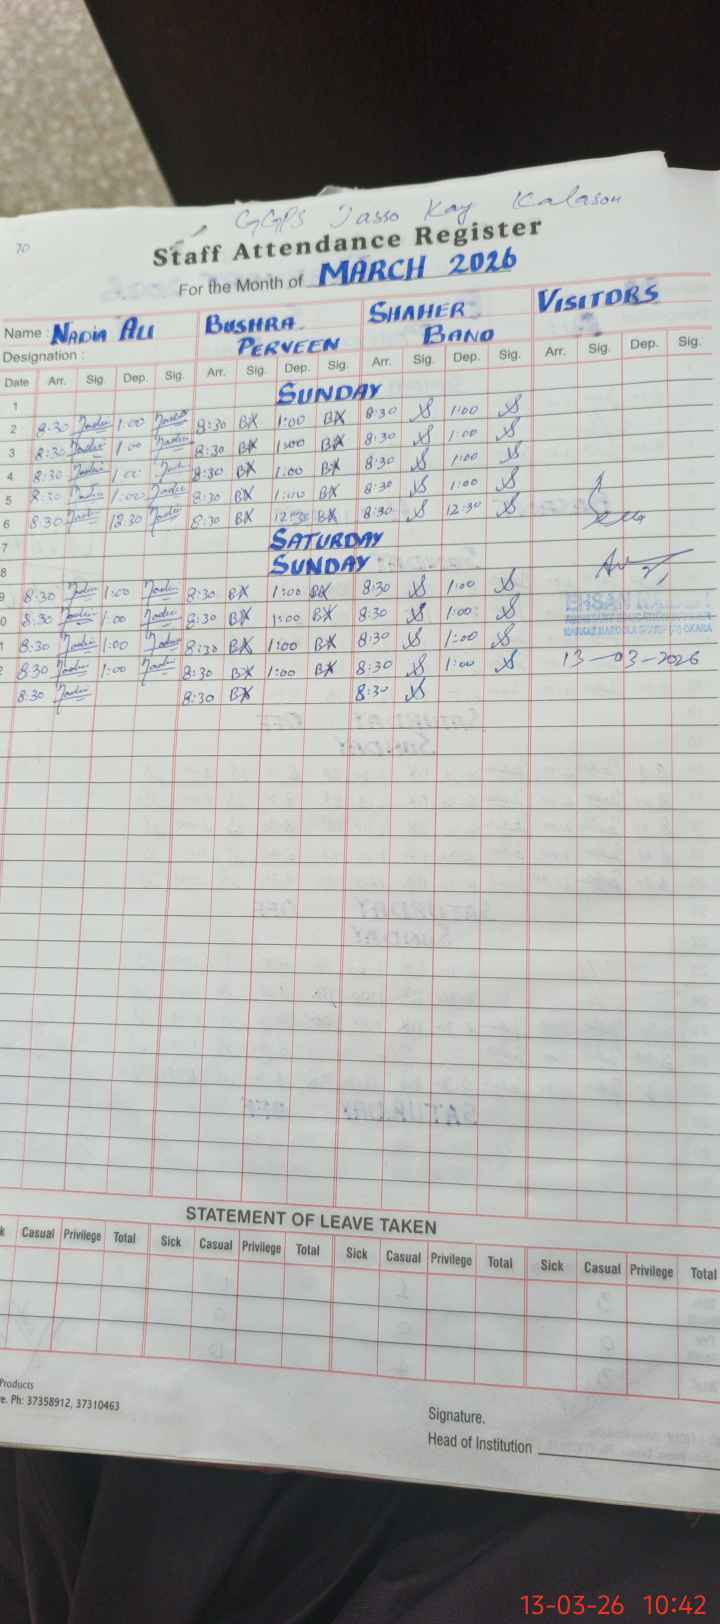 70
GGPS Jasso Kay Kalason
Staff Attendance Register
For the Month of MARCH 2026
Name : NADIA ALI BUSHRA PERVEEN SHAHER BANO VISITORS
Designation :
Date Arr. Sig. Dep. Sig. Arr. Sig. Dep. Sig. Arr. Sig. Dep. Sig. Arr. Sig. Dep. Sig.
1 SUNDAY
2 8:30 Nadia 1:00 Nadia 8:30 BX 1:00 BX 8:30 1:00
3 8:30 Nadia 1:00 Nadia 8:30 BX 1:00 BX 8:30 1:00
4 8:30 Nadia 1:00 Nadia 8:30 BX 1:00 BX 8:30 1:00
5 8:30 Nadia 1:00 Nadia 8:30 BX 1:00 BX 8:30 1:00
6 8:30 Nadia 12:30 Nadia 8:30 BX 12:30 BX 8:30 12:30
7 SATURDAY
8 SUNDAY
9 8:30 Nadia 1:00 Nadia 8:30 BX 1:00 BX 8:30 1:00
0 8:30 Nadia 1:00 Nadia 8:30 BX 1:00 BX 8:30 1:00
1 8:30 Nadia 1:00 Nadia 8:30 BX 1:00 BX 8:30 1:00
2 8:30 Nadia 1:00 Nadia 8:30 BX 1:00 BX 8:30 1:00 13-03-2026
8:30 Nadia 8:30 BX 8:30
STATEMENT OF LEAVE TAKEN
k Casual Privilege Total Sick Casual Privilege Total Sick Casual Privilege Total Sick Casual Privilege Total
Products
e. Ph: 37358912, 37310463
Signature.
Head of Institution
13-03-26 10:42